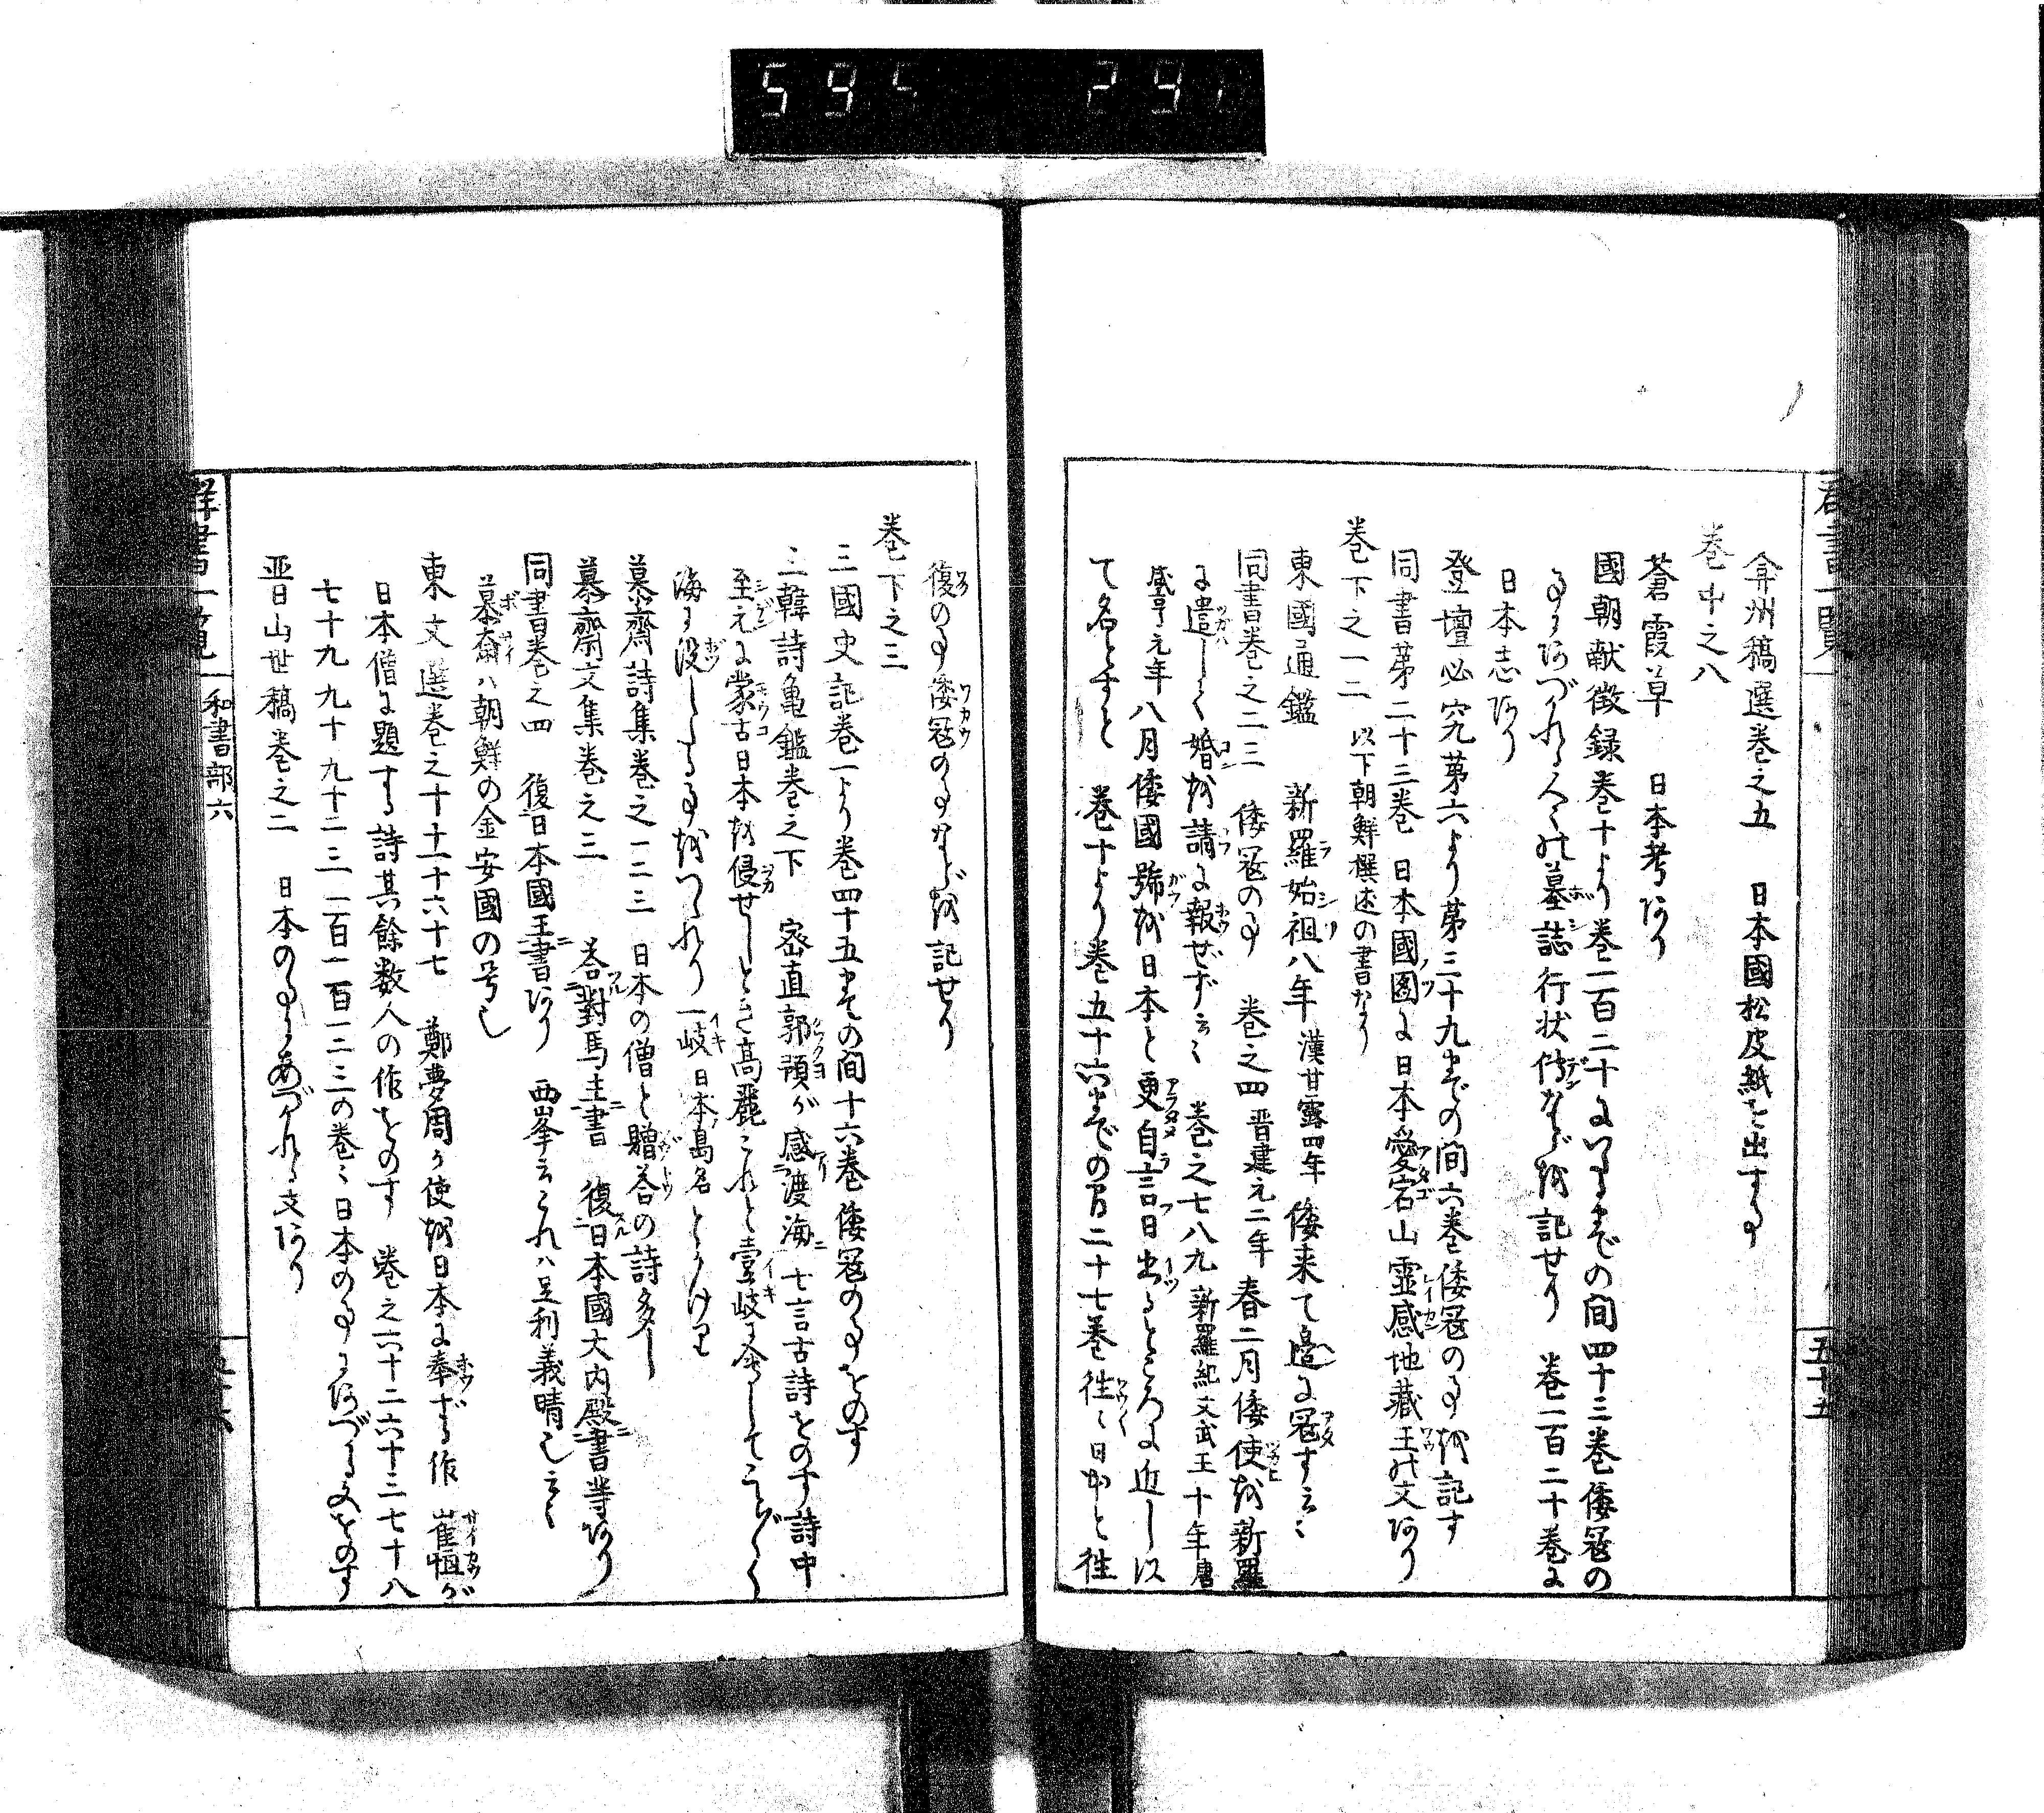 595 291
群書一覧
五十五
弇州稿選巻之五 日本國松皮紙を出す事
巻中之八
蒼霞草 日本考あり
國朝献徴録巻十より巻一百二十にいたるまでの間四十三巻倭冦の
事にあづかれる人々の墓誌行状傳などを記せり 巻一百二十巻に
日本志あり
登壇必究第六より第三十九までの間六巻倭冦の事を記す
同書第二十三巻 日本國圖に日本愛宕山霊感地蔵王の文あり
巻下之一二 以下朝鮮撰述の書なり
東國通鑑 新羅始祖八年 漢甘露四年 倭来て邉に冦す云々
同書巻之二三 倭冦の事 巻之四 晋建元二年 春二月倭使を新羅
に遣して婚を請に報ぜず云々 巻之七八九 新羅紀文武王十年 唐
咸亨元年 八月倭國號を日本と更自言日出るところに近し以
て名とすと 巻十より巻五十六までの間二十七巻往々日本と往
復の事倭冦の事などを記せり
巻下之三
三國史記巻一より巻四十五までの間十六巻倭冦の事をのす
三韓詩亀鑑巻之下 密直郭預が感渡海 七言古詩をのす詩中
至元に蒙古日本を侵せしとき高麗これと壹岐に会してことごとく
海に没したる事をつくれり 一岐日本島名とつけり
慕齋詩集巻之一二三 日本の僧と贈答の詩多し
慕齋文集巻之三 答對馬主書 復日本國大内殿書等あり
同書巻之四 復日本國王書あり 西峯云これハ足利義晴也云々
慕齋ハ朝鮮の金安國の号也
東文選巻之十十一十六十七 鄭夢周が使を日本に奉ずる作 崔恒が
日本僧に題する詩其餘数人の作をのす 巻之六十二六十三七十八
七十九九十九十二三一百一百一二三の巻々日本の事にあづかる文をのす
晋山世稿巻之二 日本の事にあづかれる文あり
群書一覧 和書部六
五十六